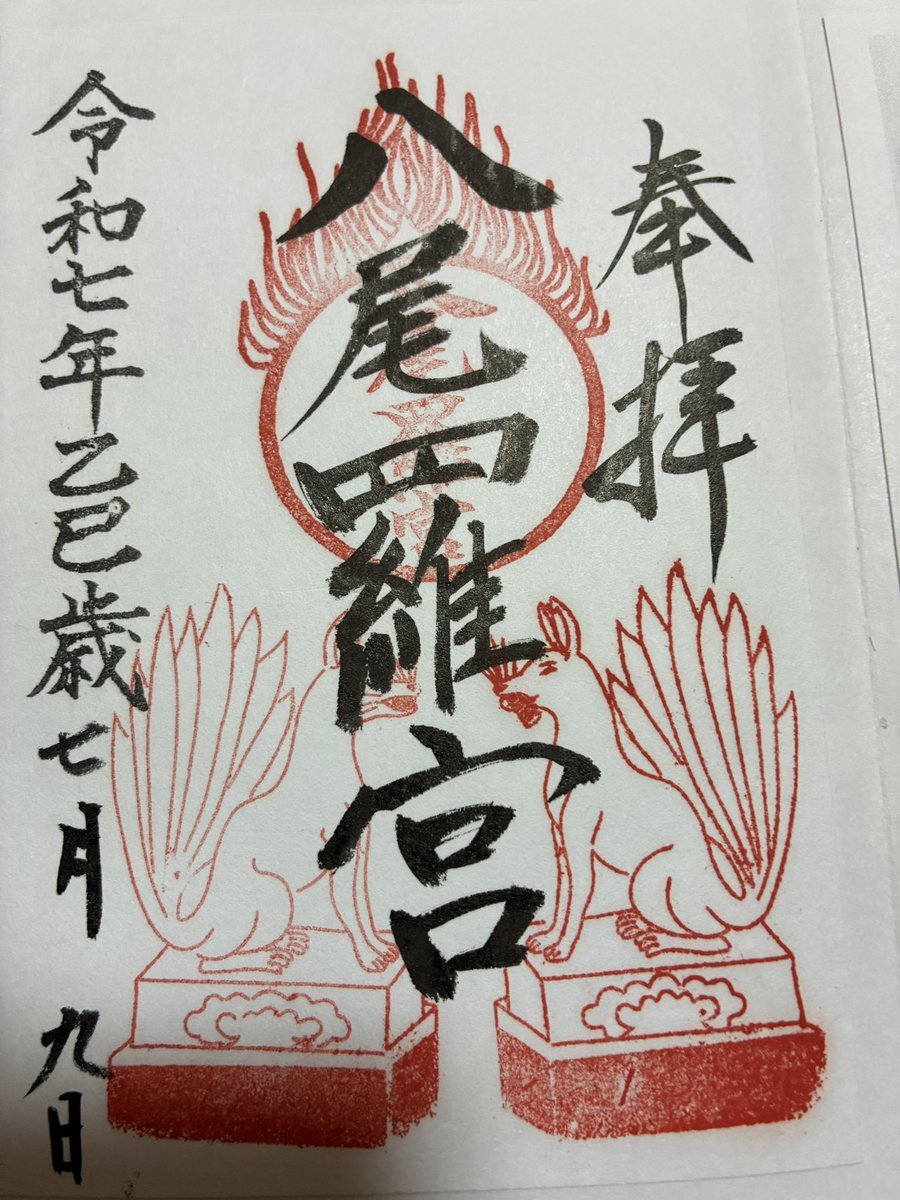 奉拝
八尾四維宮
令和七年乙巳歳七月九日